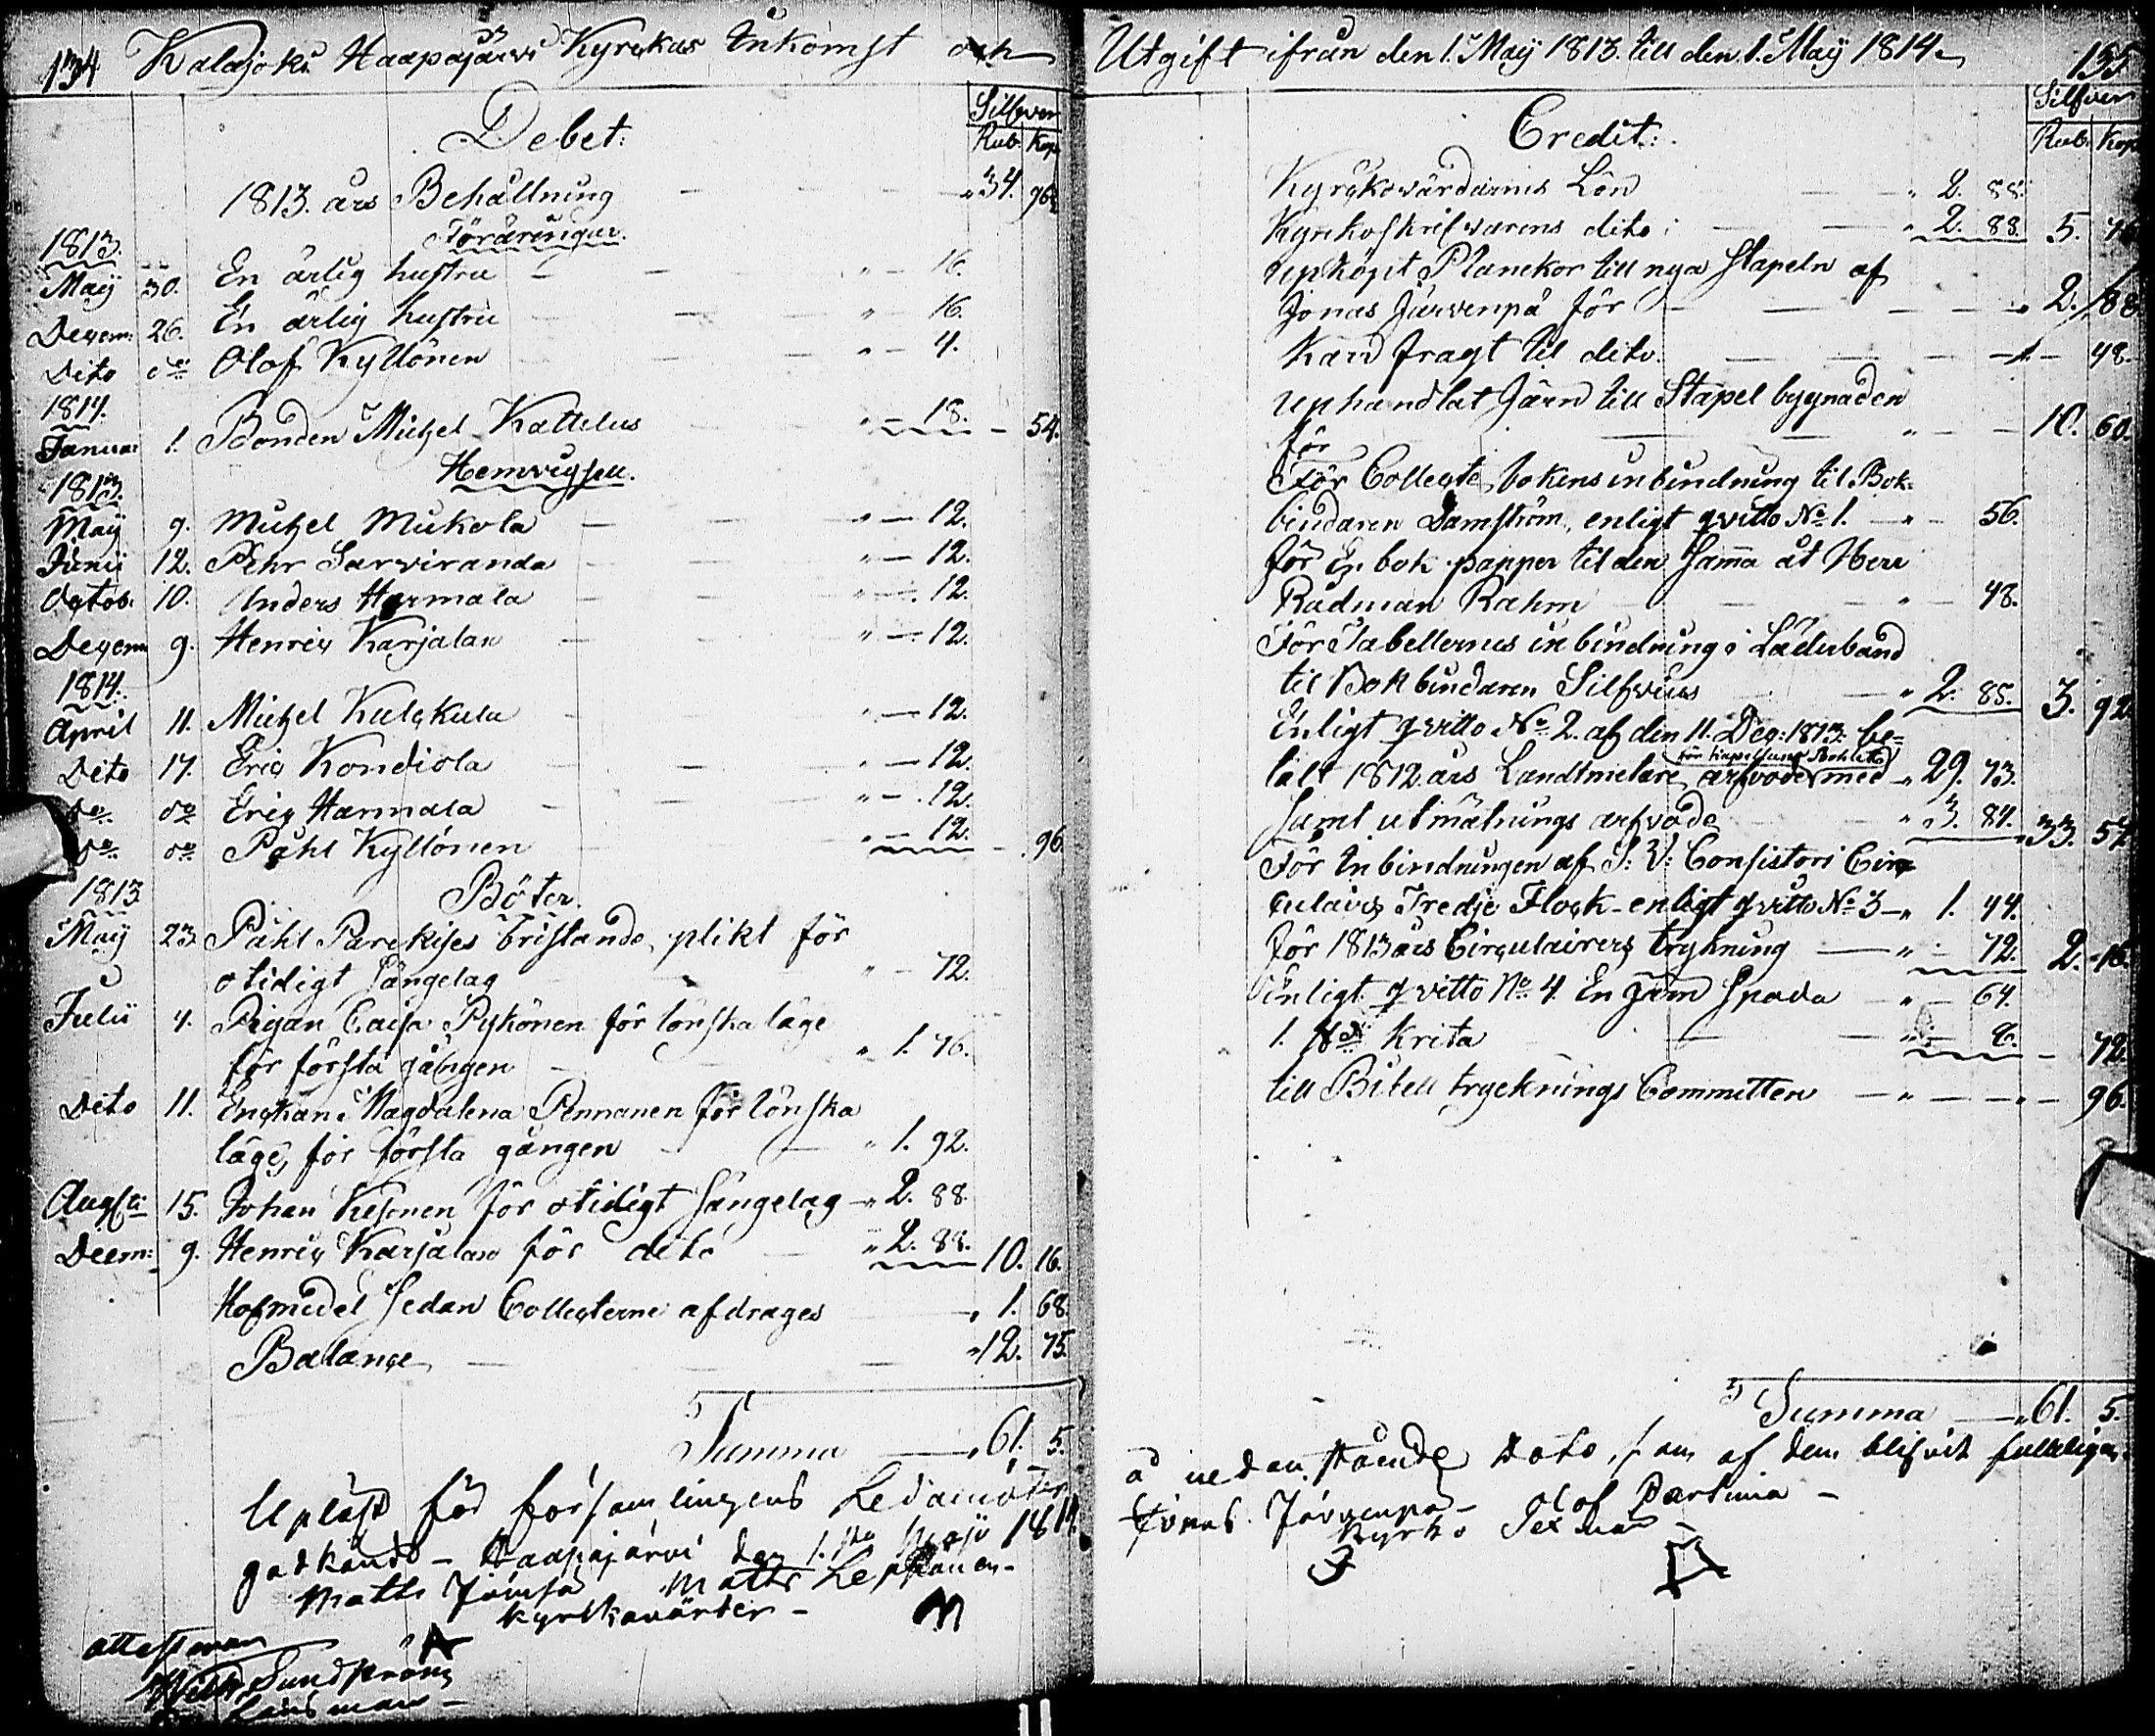 134 Kalajoki Haapajärvi Kyrckas Inkomst och
Debet:
Silfver
Rub. Kop.
1813. års Behållning 34. 96½
Föräringar.
1813.
Maij 30. En ärlig hustru 16.
Decem: 26. En ärlig hustru 16.
Dito do Olof Kyllönen 4.
1814.
Januar 1. Bonden Michel Kattelus 18. 54.
Hemvigsell.
1813.
Maij 9. Michel Mukola 12.
Junii 12. Pehr Sarviranda 12.
Octob: 10. Anders Harmala 12.
Decem 9. Henric Karjalan 12.
1814.
April 11. Michel Kulckula 12.
Dito 17. Eric Kondiola 12.
do do Eric Harmala 12.
do do Påhl Kyllönen 12. 96.
1813.
Böter.
Maij 23. Påhl Parckises bristande plikt för
otidigt sängelag 72.
Julii 4. Pigan Caisa Pykönen för lönska läge
för första gången 1. 76.
Dito 11. Enckan Magdalena Pennanen för lönska
läge, för första gången 1. 92.
Augsti 15. Johan Kesonen för otidigt sängelag 2. 88.
Decem: 9. Henric Karjalan för dito 2. 88. 10. 16.
Hofmedel sedan Collecterne afdrages 1. 68.
Balance 12. 75.
Summa 61. 5.
Uplåst för församlingens Ledamöter
godkändt - Haapajärvi den 1:sta Maji 1814.
Matts Jämsä Matts Leppänen
Kyrckovärder -
attesterar
Sundström
Länsman -
Utgift ifrån den 1. Maij 1813. till den 1. Maij 1814. 135
Credit:
Silfver
Rub. Kop
Kyrckovärdarnes Lön 2. 88.
Kyrckoskrifvarens dito: 2. 88. 5. 76
Upköpt Planckor till nya Stapeln af
Jonas Järvenpä för 2. 88
Kard fragt til dito. 48.
Uphandlat Järn till Stapel bygnaden
för 10. 60.
För Collecte bokens inbindning til Bok-
bindaren Damström, enligt qvitto No 1. 56.
för En bok papper til den samma åt Herr
Rådman Rahm 48.
För Tabellernes inbindning i Läderband
til Bokbindaren Silfvius 2. 85. 3. 92.
Enligt qvitto No 2. af den 11. Dec: 1813. be-
talt 1812 års Landtmätare arfvode med 29. 73.
samt utmätnings arfvode 3. 84. 33. 57
För Inbindningen af S: V: Consistori Cir-
culairs Tredje Flock enligt qvitto No 3 1. 44.
för 1813 års Circulairers tryckning 72. 2. 16.
Enligt qvitto No 4. En Järn Spada 64.
1. Krita 72.
till Bibell trycknings Committen 96.
Summa 61. 5.
å nedanstående dato, som af dem blifvit fulleligen
Jonas Järvenpä - Olof Partima -
Kyrko Sexman -